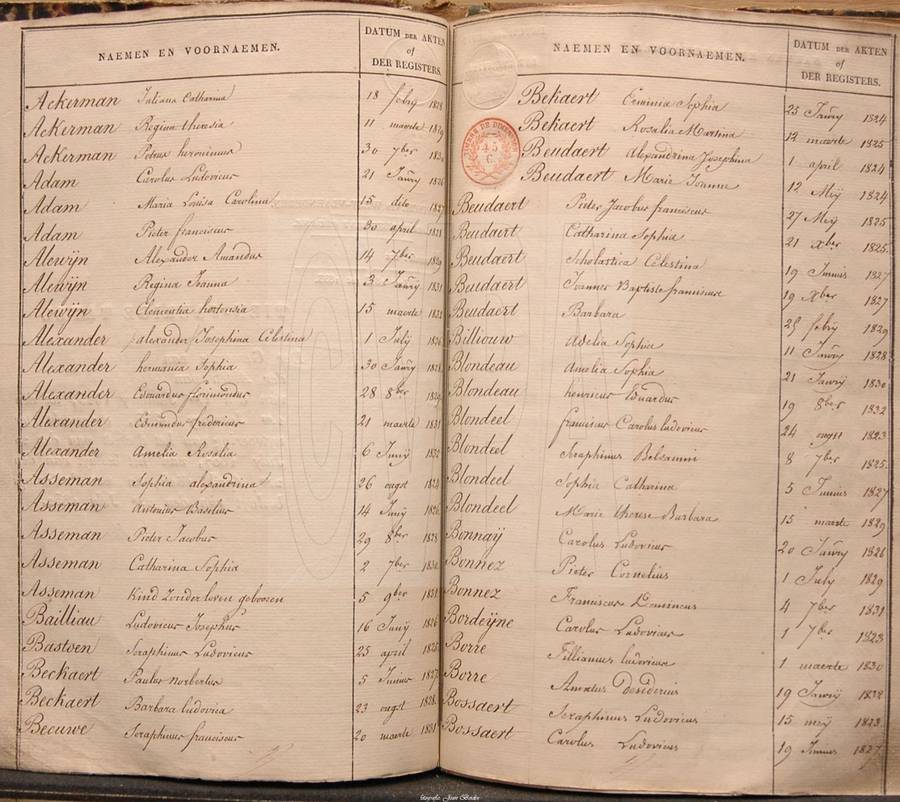 NAEMEN EN VOORNAEMEN.
DATUM DER AKTEN
of
DER REGISTERS.
Ackerman Tatiana Catharina 18 febry
Ackerman Regina theresia 11 maerte
Ackerman Petrus heronimus 30 7ber
Adam Carolus Ludovicus 21 Janry
Adam Maria Louisa Carolina 15 dito
Adam Pieter franciscus 30 april
Alewijn Alexander Amandus 14 7ber
Alewijn Regina Joanna 3 Janry 1831
Alewijn Clementia hortensia 15 maerte
Alexander alexander Josephina Celestina 1 July
Alexander hermania Sophia 30 Janry
Alexander Edouardus florimondus 28 8ber
Alexander Edmundus fredericus 21 maerte 1831
Alexander Amelia Rosalia 6 Junij
Asseman Sophia alexandrina 26 ougst
Asseman Antonius Basilius 14 Junij
Asseman Pieter Jacobus 29 8ber
Asseman Catharina Sophia 2 7ber
Asseman Kind Zonder leven geboren 5 9ber
Bailliau Ludovicus Josephus 16 Junij
Bastoen Seraphinus Ludovicus 25 april
Beckaert Paulus norbertus 5 Junius 1827
Beckaert Barbara ludovia 23 ougst 1828
Becuwe Seraphinus franciscus 20 maerte 1831
NAEMEN EN VOORNAEMEN.
DATUM DER AKTEN
of
DER REGISTERS.
45
C.
Bekaert Erminia Sophia 25 Janry 1824
Bekaert Rosalia Martina 12 maerte 1825
Beudaert Alexandrina Josephina 1 april 1824
Beudaert Marie Joanne 12 Meij 1824
Beudaert Pieter Jacobus franciscus 27 Mey 1825
Beudaert Catharina Sophia 21 xber 1825
Beudaert Scholastica Celestina 19 Junius 1827
Beudaert Joannes Baptiste franciscus 19 Xber 1827
Beudaert Barbara 25 febry 1829
Billiouw Adelia Sophia 11 Janry 1828
Blondeau Amelia Sophia 21 Janry 1830
Blondeau henricus Eduardus 19 8ber 1832
Blondeel franciscus Carolus ludovicus 24 ougst 1823
Blondeel Seraphinus Belsamin 8 7ber 1825
Blondeel Sophia Catharina 5 Junius 1827
Blondeel Marie therese Barbara 15 maerte 1829
Bonnaÿ Carolus Ludovicus 20 Janry 1826
Bonnez Pieter Cornelius 1 July 1829
Bonnez Franciscus Dominicus 4 7ber 1831
Bordeÿne Carolus Ludovicus 1 7ber 1823
Borre ludovicus 1 maerte 1830
Borre Amatus Desiderius 19 Janry 1832
Bossaert Seraphinus Ludovicus 15 meij 1823
Bossaert Carolus Ludovicus 19 Junius 1827